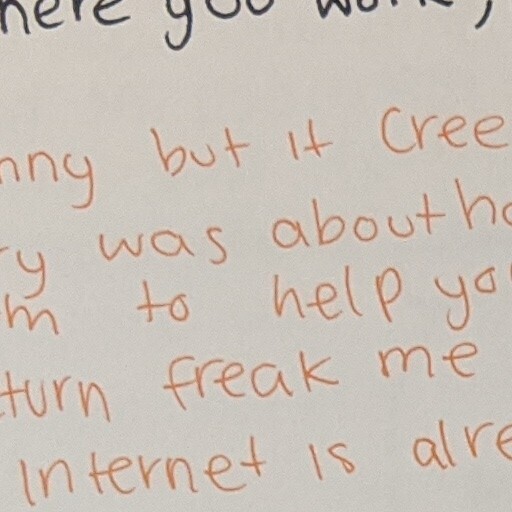 here you work,
nny but it Cree
ry was about ho
m to help yo
turn freak me
Internet is alre